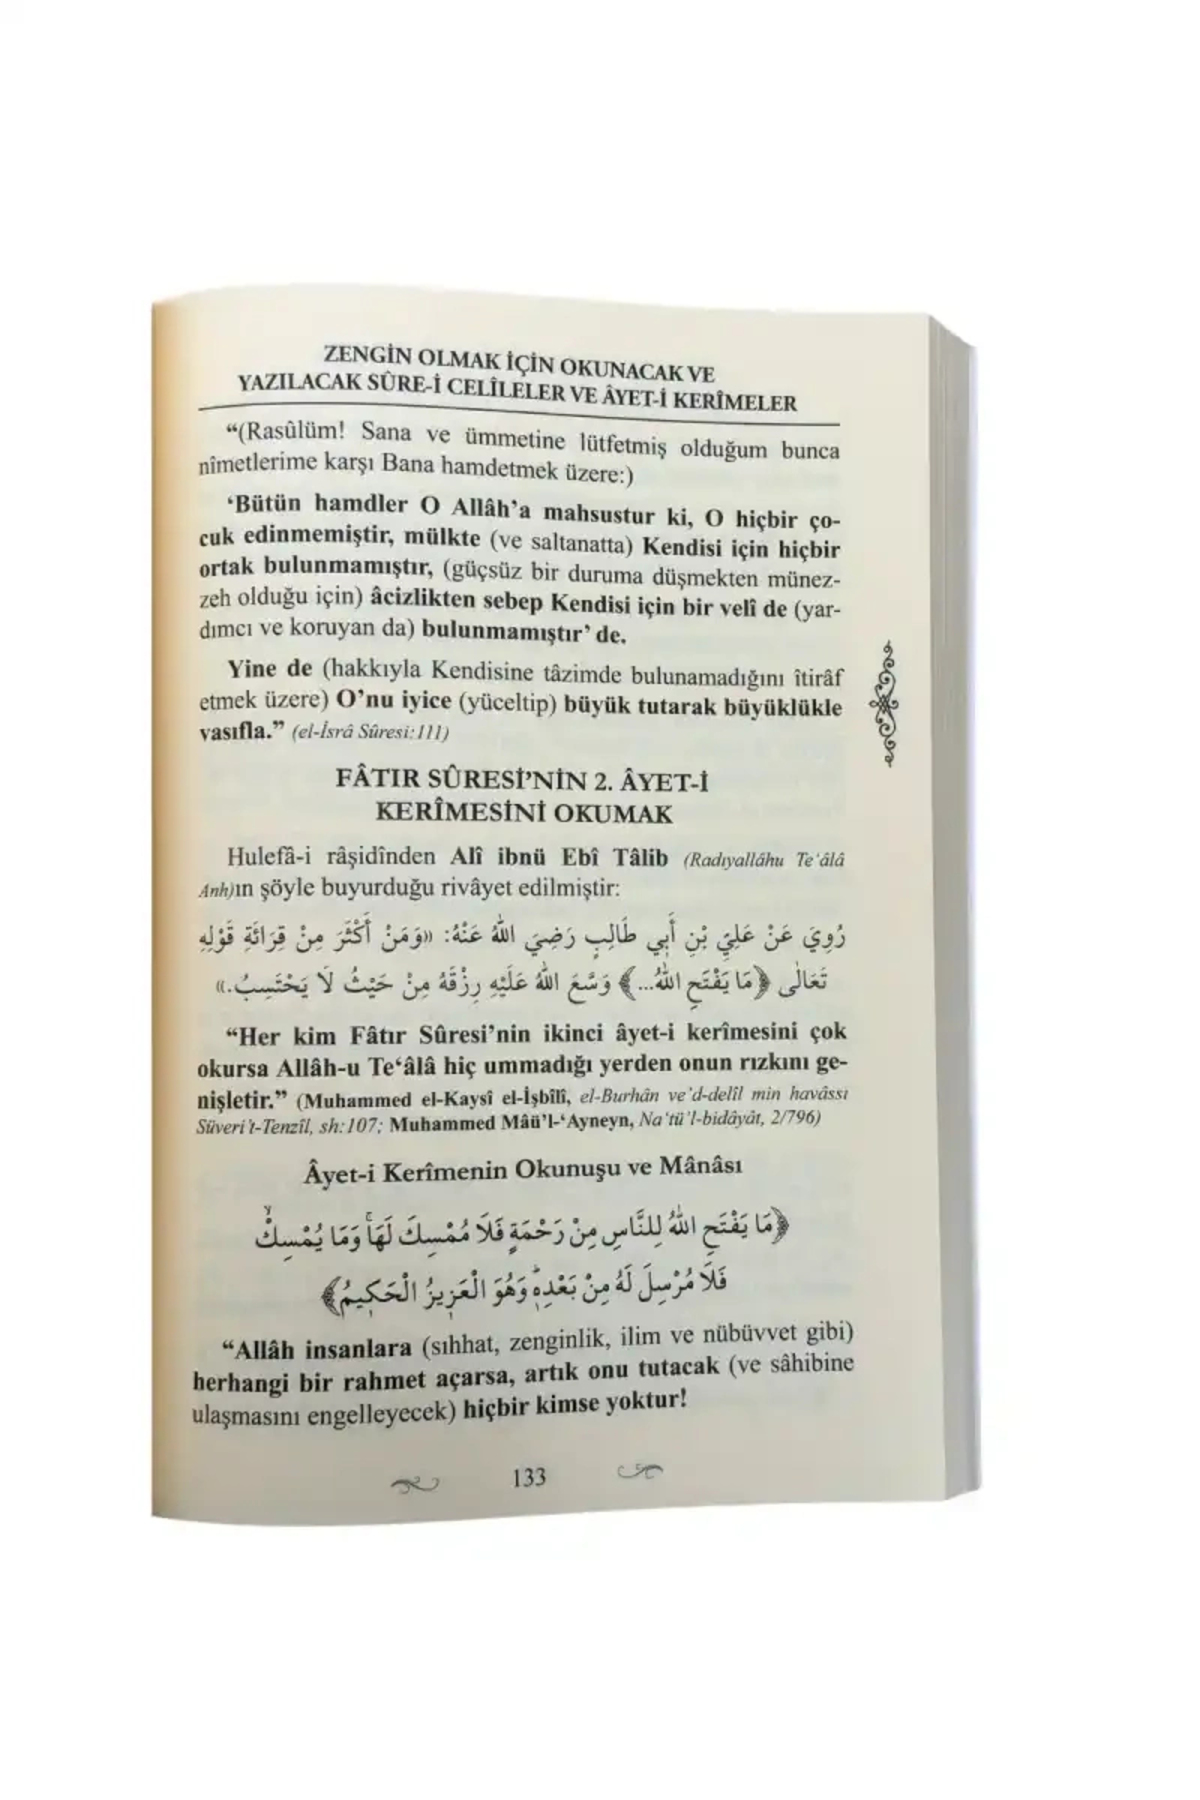 ZENGİN OLMAK İÇİN OKUNACAK VE
YAZILACAK SÛRE-İ CELÎLELER VE ÂYET-İ KERÎMELER
“(Rasûlüm! Sana ve ümmetine lütfetmiş olduğum bunca
nîmetlerime karşı Bana hamdetmek üzere:)
‘Bütün hamdler O Allâh’a mahsustur ki, O hiçbir ço-
cuk edinmemiştir, mülkte (ve saltanatta) Kendisi için hiçbir
ortak bulunmamıştır, (güçsüz bir duruma düşmekten münez-
zeh olduğu için) âcizlikten sebep Kendisi için bir velî de (yar-
dımcı ve koruyan da) bulunmamıştır’ de.
Yine de (hakkıyla Kendisine tâzimde bulunamadığını îtirâf
etmek üzere) O’nu iyice (yüceltip) büyük tutarak büyüklükle
vasıfla.” (el-İsrâ Sûresi:111)
FÂTIR SÛRESİ’NİN 2. ÂYET-İ
KERÎMESİNİ OKUMAK
Hulefâ-i râşidînden Alî ibnü Ebî Tâlib (Radıyallâhu Te‘âlâ
Anh)ın şöyle buyurduğu rivâyet edilmiştir:
رُوِيَ عَنْ عَلِيِّ بْنِ أَبِي طَالِبٍ رَضِيَ اللّٰهُ عَنْهُ: «وَمَنْ أَكْثَرَ مِنْ قِرَائَةِ قَوْلِهِ
تَعَالٰى ﴿مَا يَفْتَحِ اللّٰهُ...﴾ وَسَّعَ اللّٰهُ عَلَيْهِ رِزْقَهُ مِنْ حَيْثُ لَا يَحْتَسِبُ.»
“Her kim Fâtır Sûresi’nin ikinci âyet-i kerîmesini çok
okursa Allâh-u Te‘âlâ hiç ummadığı yerden onun rızkını ge-
nişletir.” (Muhammed el-Kaysî el-İşbîlî, el-Burhân ve’d-delîl min havâssı
Süveri’t-Tenzîl, sh:107; Muhammed Mâü’l-‘Ayneyn, Na‘tü’l-bidâyât, 2/796)
Âyet-i Kerîmenin Okunuşu ve Mânâsı
﴿مَا يَفْتَحِ اللّٰهُ لِلنَّاسِ مِنْ رَحْمَةٍ فَلَا مُمْسِكَ لَهَاۚ وَمَا يُمْسِكْۙ
فَلَا مُرْسِلَ لَهُ مِنْ بَعْدِهٖۜ وَهُوَ الْعَزِيزُ الْحَكِيمُ﴾
“Allâh insanlara (sıhhat, zenginlik, ilim ve nübüvvet gibi)
herhangi bir rahmet açarsa, artık onu tutacak (ve sâhibine
ulaşmasını engelleyecek) hiçbir kimse yoktur!
133